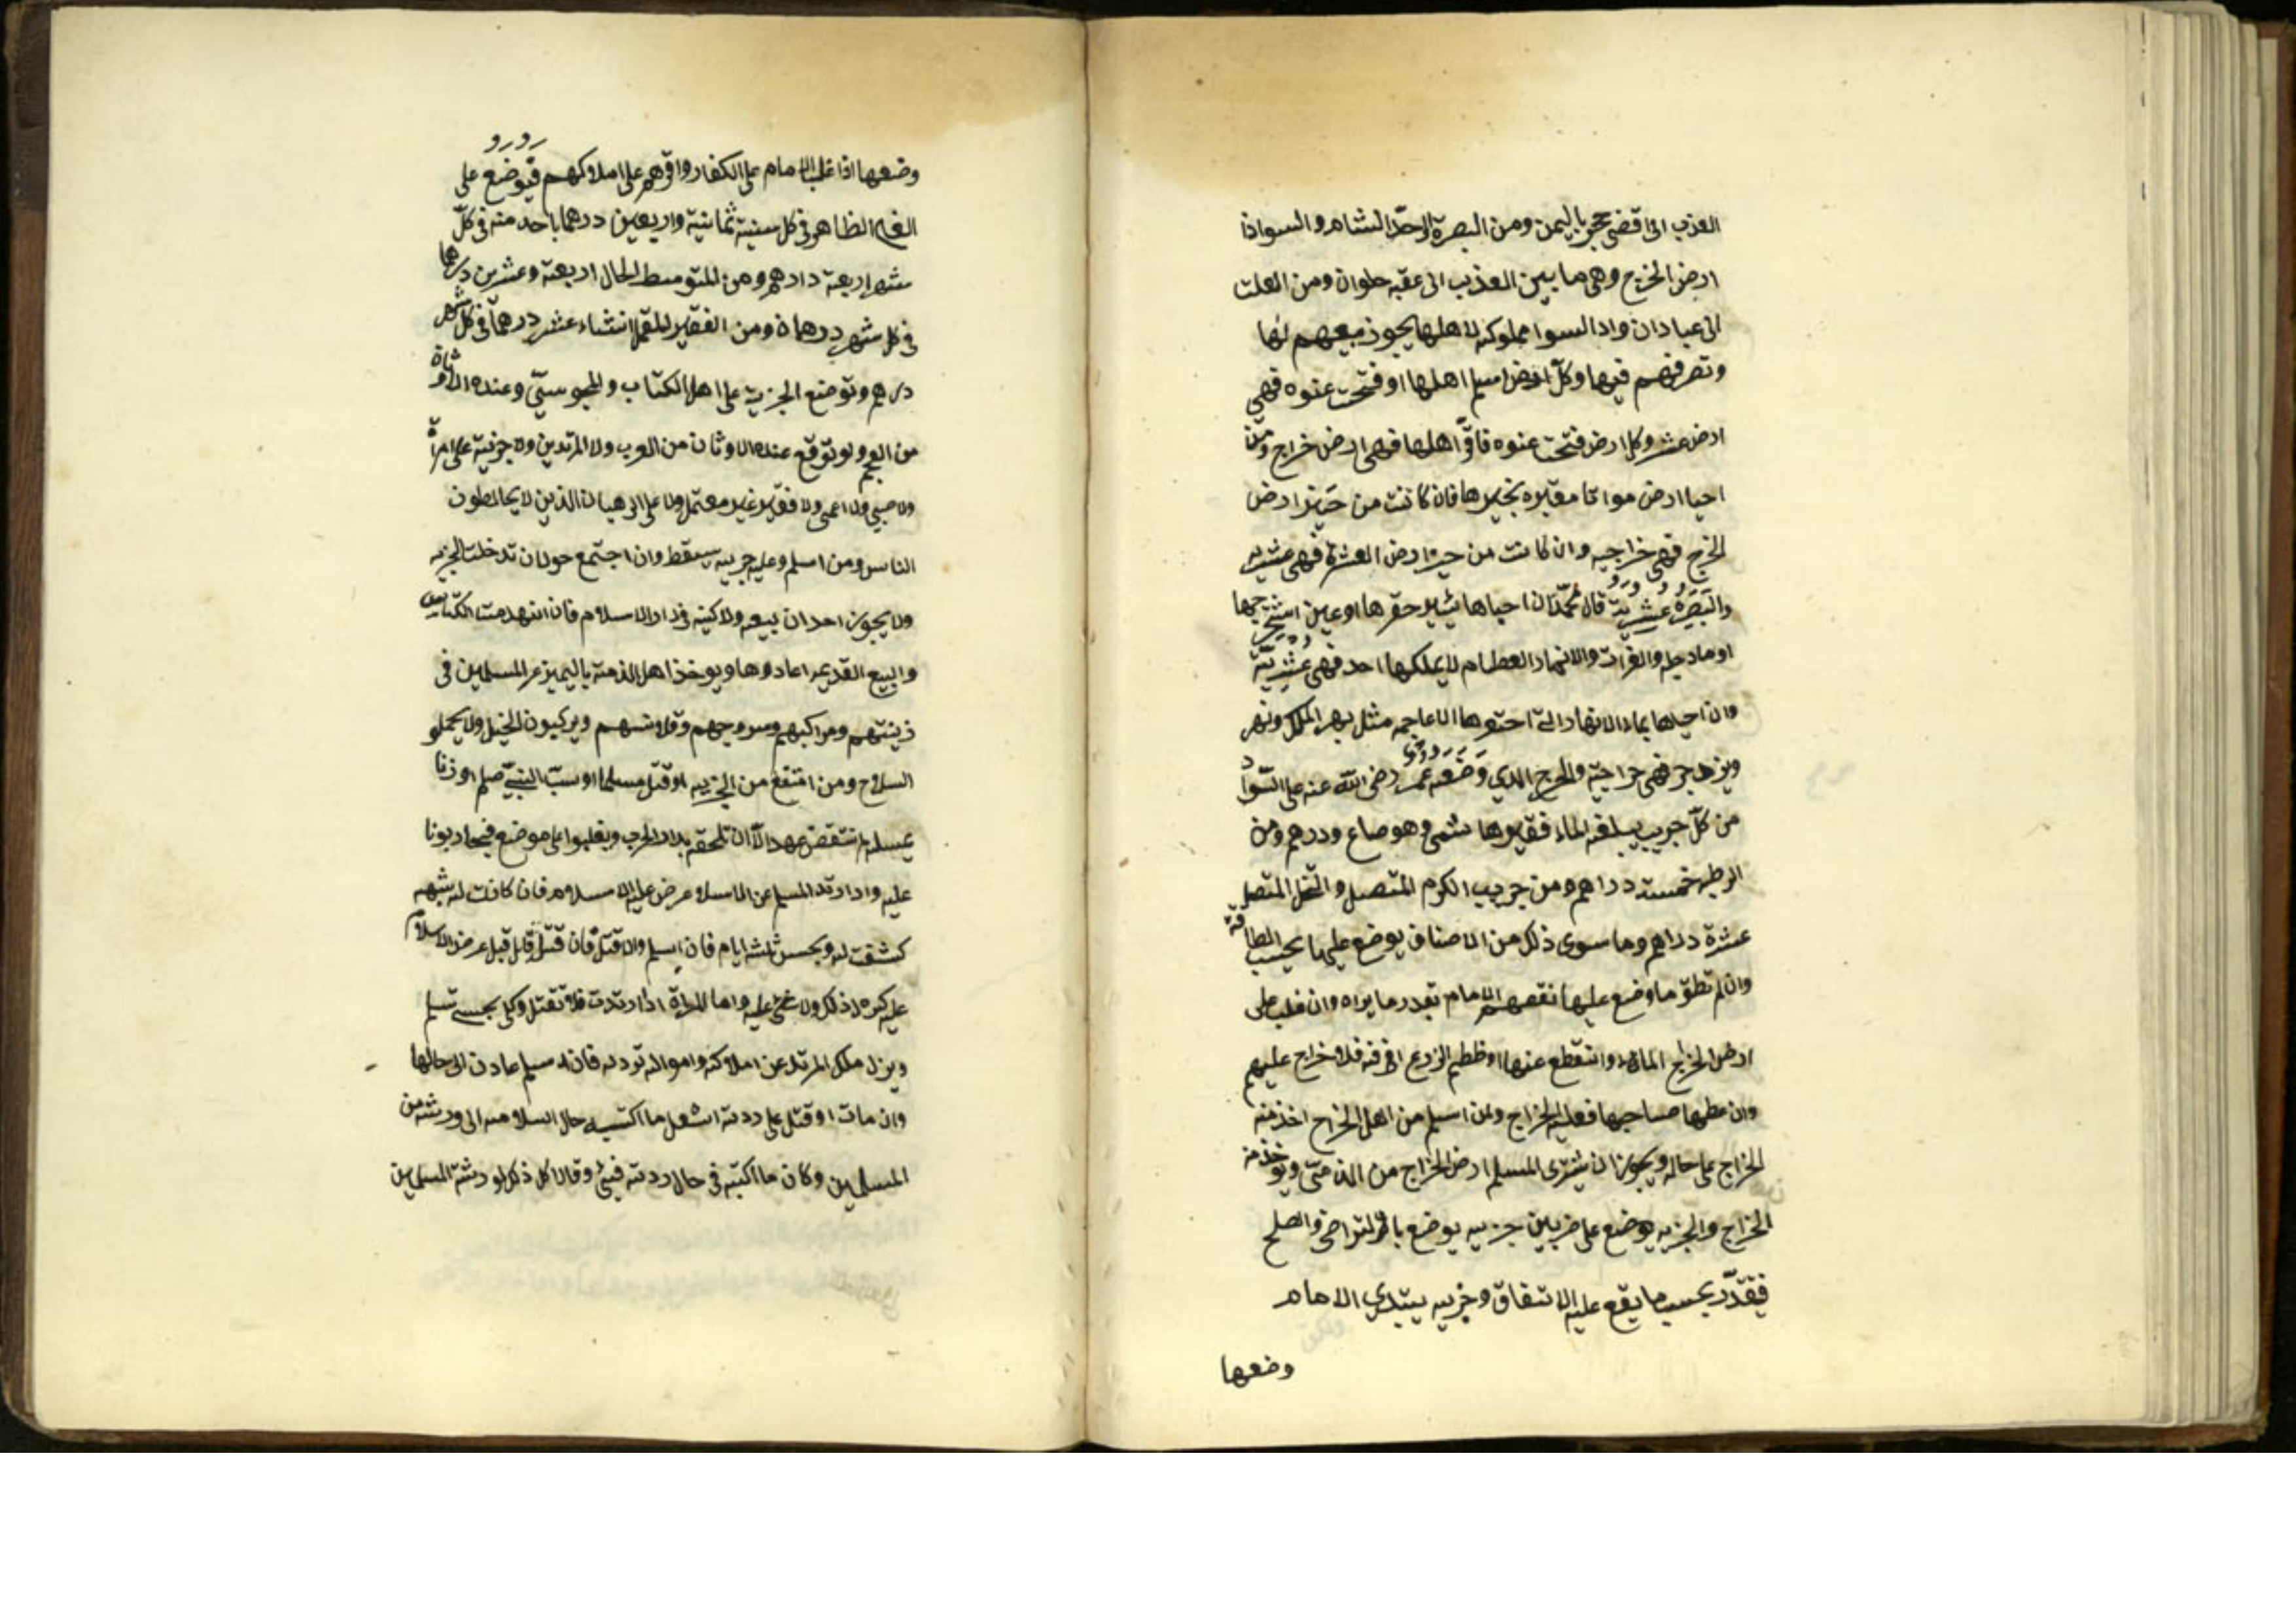 العذيب الى اقضى حجر باليمن ومن البصرة الى حدّ الشام والسواذا
ارض الخرج وهى ما بين العذيب الى عقبه حلوان ومن العلث
الى عبادان وادا السوا مملوكه لاهلها يجوز بيعهم لها
وتصرفهم فيها وكلّ ارض اسلم اهلها او فتحت عنوه فهي
ارض عشر وكل ارض فتحت عنوه فاقرّ اهلها فهي ارض خراج ومن
احيا ارض مواتا معتبره بخيرها فان كانت من حيز ارض
الخرج فهي خراجيه وان كانت من حيز ارض العشر فهى عشريه
والبَصَرَةُ عُشْرِيّة قال محمّد ان احياها ببئر حفرها او عين استخرجها
او ماء دجله والفرات والانهار العطام لا يملكها احد فهي عُشْرِيّة
وان احياها بماء الانهار الّتى احتفرها الاعاجمه مثل نهر الملك ونهر
ويزدجر فهي خراجيّة والخرج الدي وَضَعَه عُمَر رضى اللّه عنه على السّواد
من كلّ جريب يبلغه الماء فقيرها شمى وهو صاع ودرهم ومن
الرطبه خمسته دراهم ومن جريب الكرم المتصل والنّخل المتصل
عشرة دراهم وما سوى ذلك من الاصناف يوضع عليها بحسب الطاقة
وان لم تطق ما وضع عليها نقصهم الامام بقدر ما يراه وان غلب على
ارض الخراج الماء وانقطع عنها او ظطلم الزرع افه فلا خراج عليهم
وان عطها صاحبها فعليه الخراج ومن اسلم من اهل الخراج اخذ منه
الخراج على حاله ويجوز ان يشترى المسلم ارض الخراج من الذمّى ويؤخذ منه
الخراج والجزيه يوضع على ضربين جزيه يوضع بالتراضى والصلح
فيقدّر بحسب ما يقع عليه الاتفاق وجزيه يبتدي الامام
وضعها
وضعها اذا غلب الامام على الكفار واقرّهم على املاكهم فيوضع على
الغنى الظاهر في كل سنية ثمانية واربعين درهما ياخد منه في كلّ
شهر اربعة دارهم ومن المتوسط الحال اربعة وعشرين درهما
في كل شهر درهمان ومن الفقير المعتمل انثناء عشر درهما في كل شهر
درهم وتوضع الجزية على اهل الكتاب والمجوسيّ وعنده الاوثان
من العجم ولو توقع عنده الاوثان من العرب ولا المرتدين ولا جزية على امراة
ولا صبي ولا اعمى ولا فقير غير معتمل ولا على الرهبان الذين لا يخالطون
الناس ومن اسلم وعليه جزيه يسقط وان اجتمع حولان تدخلت الجزيه
ولا يجوز احداث بيعه ولا كنيه في دار الاسلام فان انهدمت الكنايس
والبيع القديمه اعادوها ويوخذ اهل الذمة باليميز عن المسلمين في
زينتهم ومراكبهم وسروجهم وقلانسهم ويركبون الخيل ولا يحملو
السلاح ومن امتنع من الجزيه او قتل مسلما او سبّ النبيّ صلم او زنا
بمسلمة انتقض عهده الّا ان تلحقه بدار الحرب ويغلبوا على موضع فيحاربونا
عليه وادا ارتد المسلم عن الاسلام عرض عليه الاسلام فان كانت له شبهه
كشفت له ويحبس ثلثه ايام فان اسلم والا قتل فان قتل قاتل قبل عرض الاسلام
عليه كره له ذلك ولا شئ عليه واما المراة اذا ارتدت فلا تقتل وكن بحبس تسلم
ويزل ملك المرتد عن املاكه وامواله بردته فان اسلم عادت الى حالها
وان مات او قتل على ردته انتقل ما اكتسبه حال اسلامه الى ورثته من
المسلمين وكان ما اكتبه في حال ردته فيئ وقالا كل ذلك لورثته المسلمين